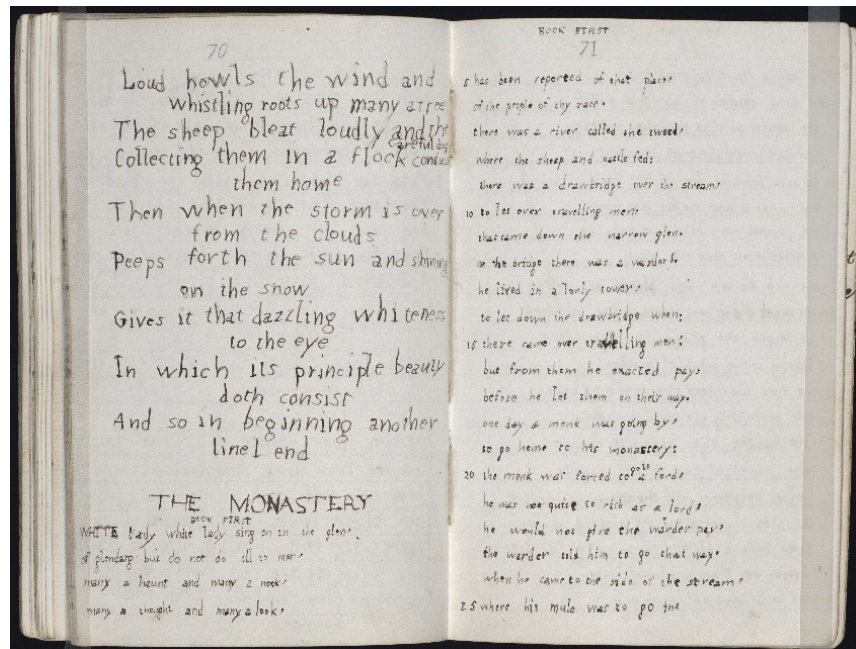 70
Loud howls the wind and
whistling roots up many a tree
The sheep bleat loudly and the
careful dog
Collecting them in a flock
them home
Then when the storm is over
from the clouds
Peeps forth the sun and shining
on the snow
Gives it that dazzling whiteness
to the eye
In which its principle beauty
doth consist
And so in beginning another
line I end
THE MONASTERY
BOOK FIRST
WHITE lady white lady sing on in the glen.
of glendarg but do not do ill to men,
many a haunt and many a nook,
many a thought and many a look,
BOOK FIRST
71
5 has been reported of that place,
of the people of thy race.
there was a river called the tweed,
where the sheep and cattle fed;
there was a drawbridge over the stream,
10 to let over travelling men;
that came down the narrow glen.
in the bridge there was a warder,
he lived in a lonly tower,
to let down the drawbridge when;
15 there came over travelling men;
but from them he exacted pay,
before he let them on their way.
one day a monk was going by,
to go home to his monastery;
20 the monk was forced to go to a ford,
he was not quite so rich as a lord,
he would not give the warder pay,
the warder told him to go that way.
when he came to the side of the stream,
25 where his mule was to go